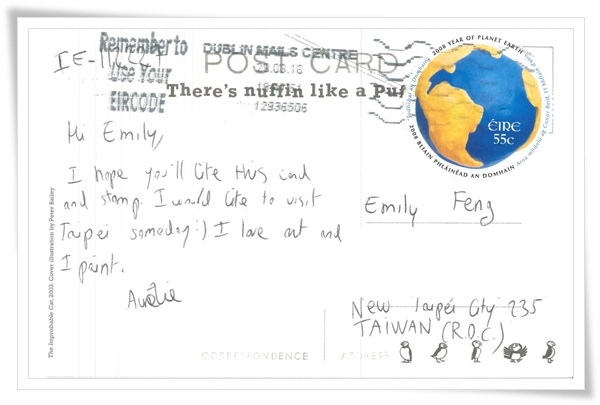 Remember to
Use Your
EIRCODE
DUBLIN MAILS CENTRE
12936506
POST CARD
There's niffin like a Puf
2008 YEAR OF PLANET EARTH
ÉIRE
55c
2008 BLIAIN PHLÁINÉAD AN DOMHAIN
Hi Emily,
I hope you'll like this card
and stamp. I would like to visit
Taipei someday :) I love art and
I paint.
Aurélie
Emily Feng
New Taipei City 235
TAIWAN (R.O.C.)
CORRESPONDENCE
ADDRESS
The Improbable Cat, 2003. Cover illustration by Peter Bailey